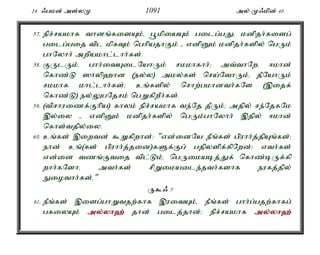 24 ஃபமன் அள்லமு 1091 அல் முஃமின் 40
57. நிச்சயமாக வானங்களையும், பூமியையும் படைப்பது, மனிதர்களைப்
படைப்பதை விட மிகவும் பெரியதாகும் - எனினும் மனிதர்களில் பெரும்
பாலோர் அறியமாட்டார்கள்.
58. குருடரும், பார்வையுடையோரும் சமமாகார்; அவ்வாறே, ஈமான்
கொண்டு ஸாலிஹான (நல்ல) அமல்கள் செய்வோரும், தீயோரும்
சமமாக மாட்டார்கள்; உங்களில் சொற்பமானவர்களே (இதைக்
கொண்டு) நல்லுபதேசம் பெறுகிறீர்கள்.
59. (விசாரணைக்குரிய) காலம் நிச்சயமாக வந்தே தீரும்; அதில் சந்தேகமே
இல்லை - எனினும் மனிதர்களில் பெரும்பாலோர் இதில் ஈமான்
கொள்வதில்லை.
60. உங்கள் இறைவன் கூறுகிறான்: "என்னையே நீங்கள் பிரார்த்தியுங்கள்;
நான் உங்(கள் பிரார்த்தனை)களுக்குப் பதிலளிக்கிறேன்; எவர்கள்
என்னை வணங்குவதை விட்டும், பெருமையடித்துக் கொண்டிருக்கி
றார்களோ, அவர்கள் சிறுமையடைந்தவர்களாக நரகத்தில்
நுழைவார்கள்."
ருகூஃ 7
61. நீங்கள் இளைப்பாறுவதற்காக இரவையும், நீங்கள் பார்ப்பதற்காகப்
பகலையும் அல்லாஹ் தான் படைத்தான்; நிச்சயமாக அல்லாஹ்